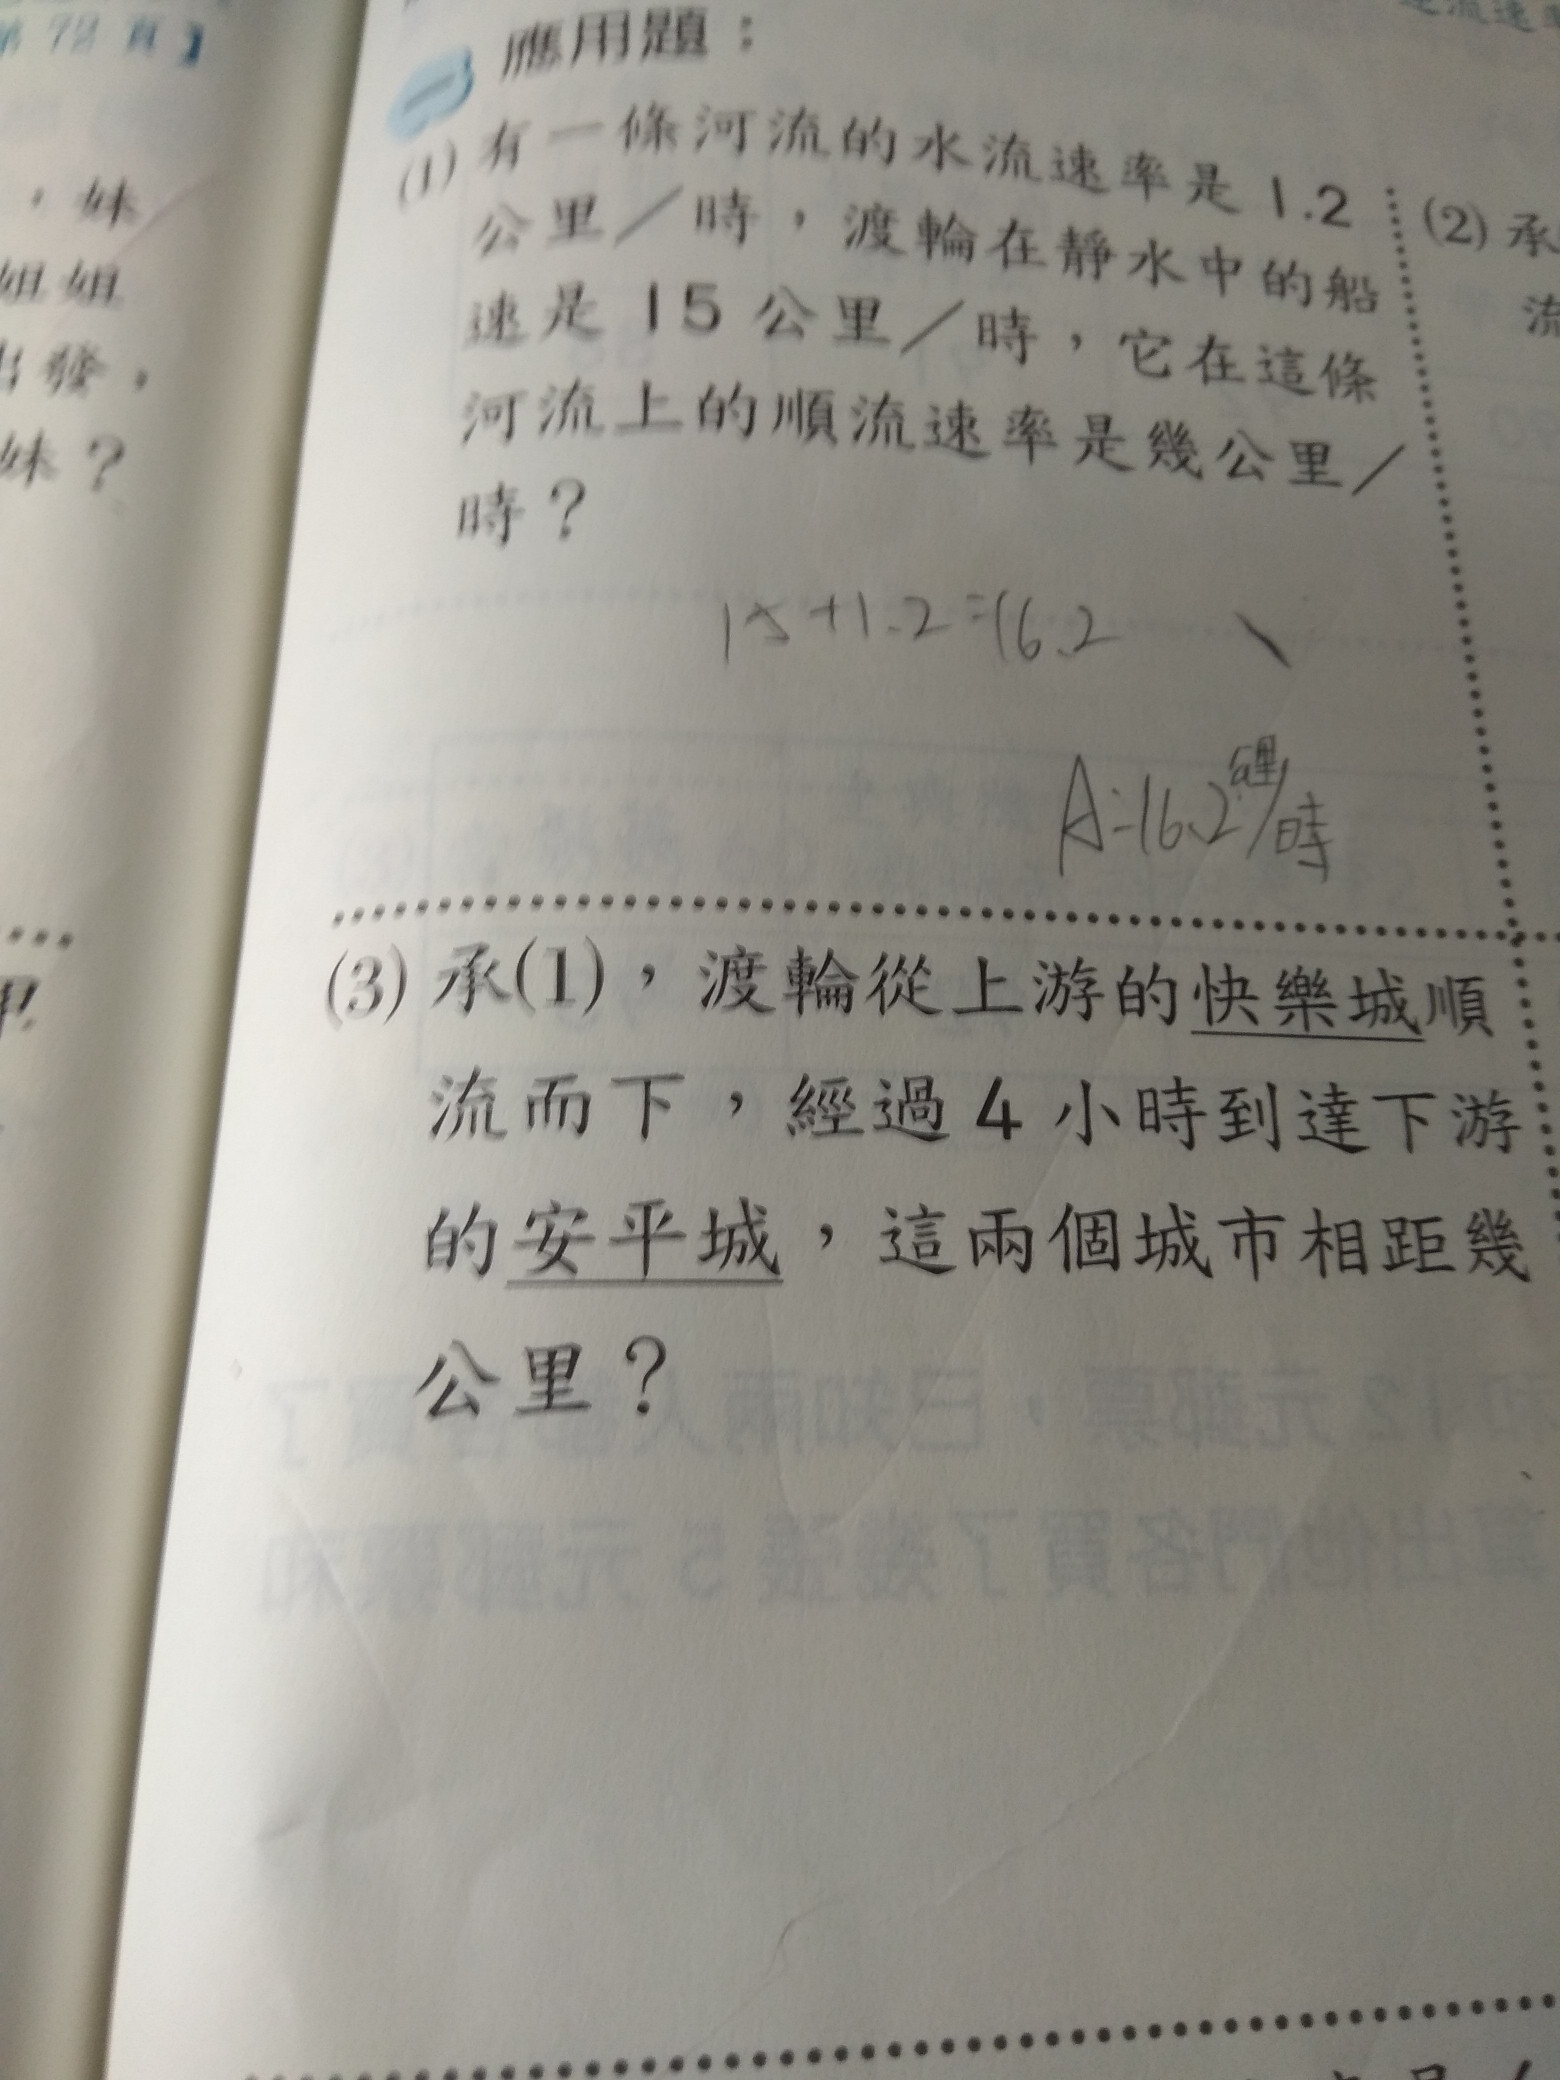 第 72 頁】
，妹
姐姐
出發，
妹？
應用題：
一
(1) 有一條河流的水流速率是 1.2
公里／時，渡輪在靜水中的船
速是 15 公里／時，它在這條
河流上的順流速率是幾公里／
時？
15+1.2=16.2
A:16.2公里/時
(2) 承
流
(3) 承(1)，渡輪從上游的快樂城順
流而下，經過 4 小時到達下游
的安平城，這兩個城市相距幾
公里？